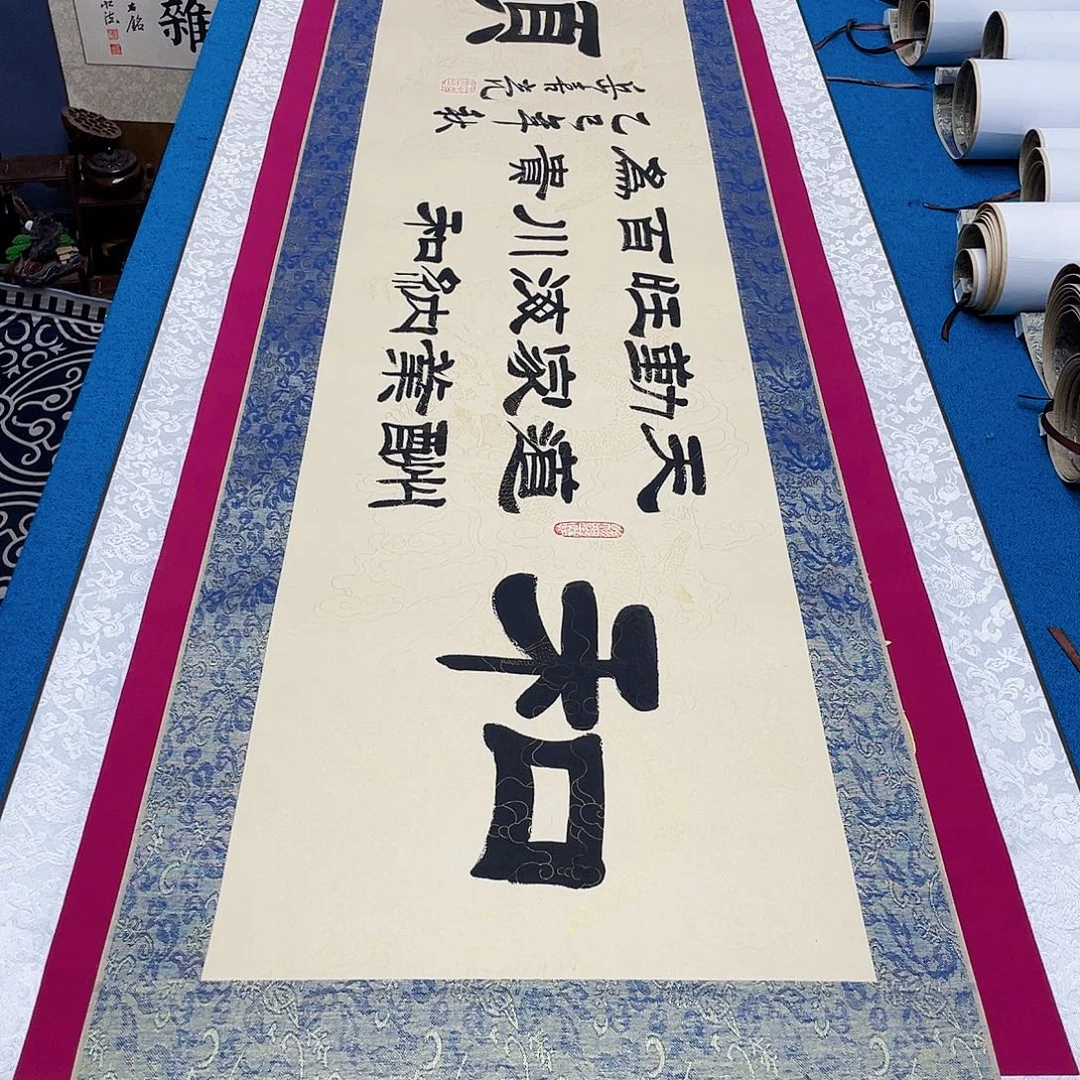 和
天道酬
勤家業
旺海納
百川和
為貴
乙巳年秋
雜